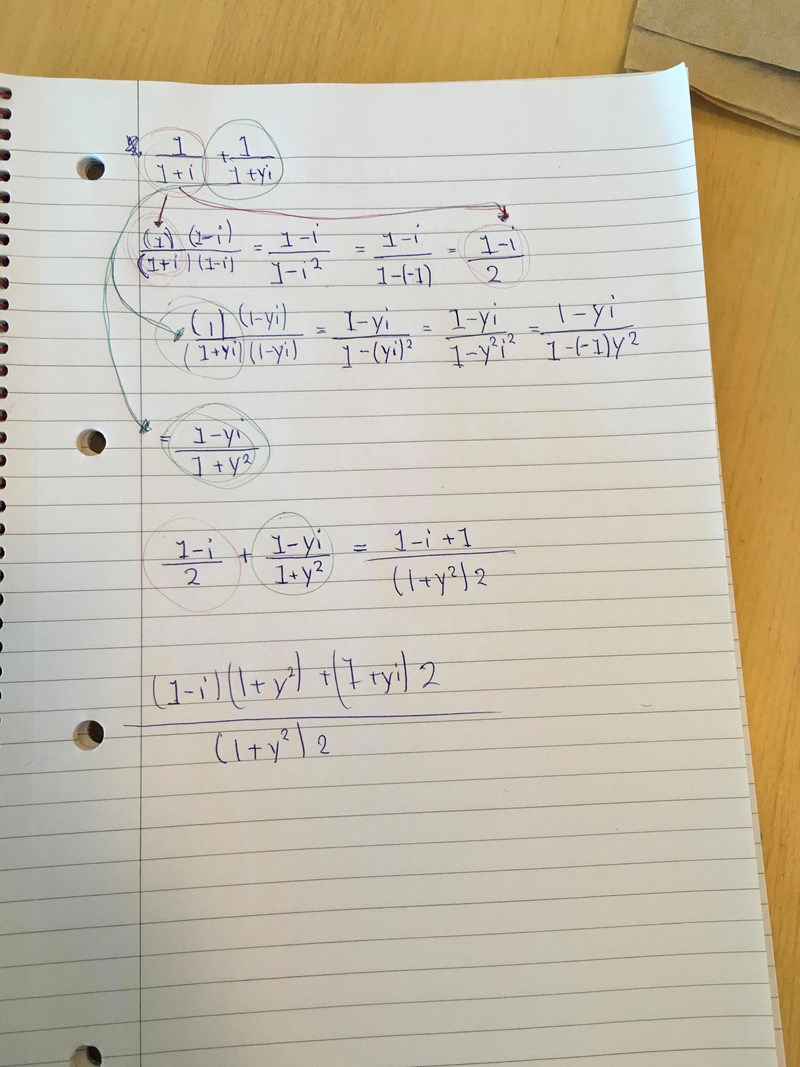 1/(1+i) + 1/(1+yi)
(1)(1-i)/(1+i)(1-i) = (1-i)/(1-i²) = (1-i)/(1-(-1)) = (1-i)/2
(1)(1-yi)/(1+yi)(1-yi) = (1-yi)/(1-(yi)²) = (1-yi)/(1-y²i²) = (1-yi)/(1-(-1)y²)
= (1-yi)/(1+y²)
(1-i)/2 + (1-yi)/(1+y²) = (1-i+1)/((1+y²)2)
((1-i)(1+y²)+(1+yi)2)/((1+y²)2)